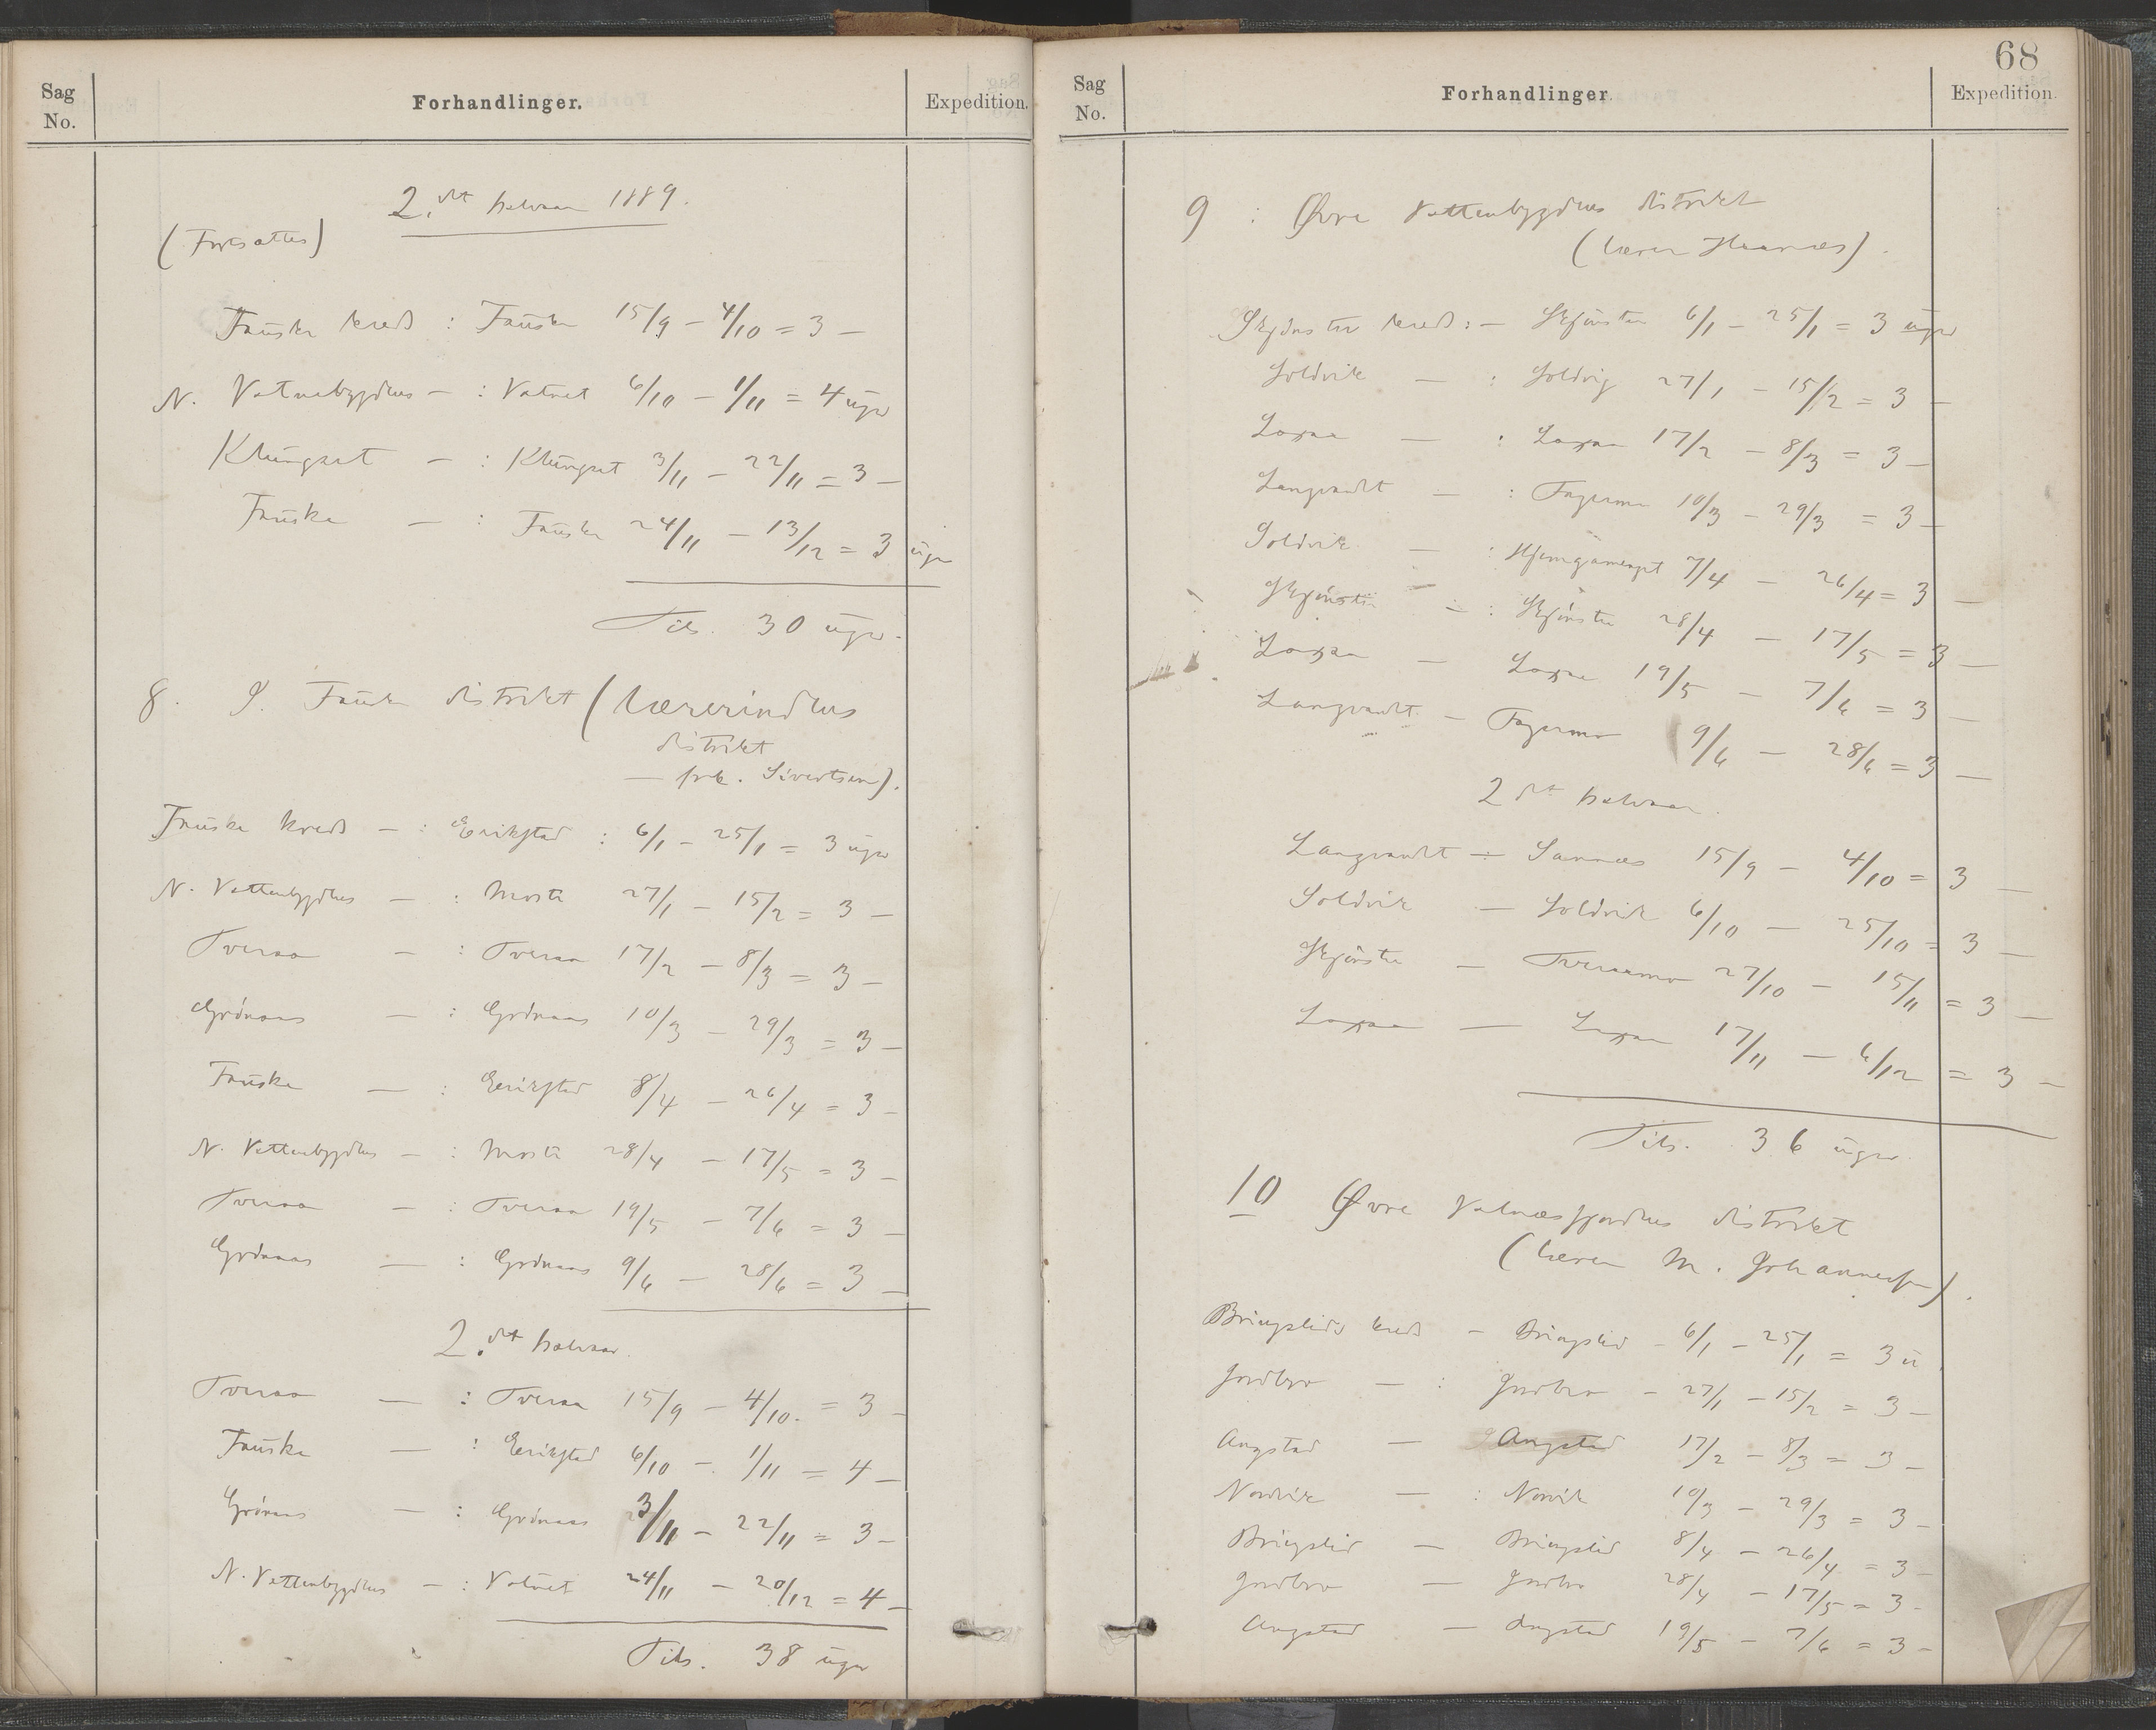 Sag
No.
Forhandlinger.
Expedition.
2.det halvaar 1889.
(Fortsattes)
Fauske kreds : Fauske 15/9 – 4/10 = 3 –
N. Vatnebygdens – : Vatnet 6/10 – 1/11 = 4 uger
Klungset – : Klungset 3/11 – 22/11 = 3 –
Fauske – : Fauske 24/11 – 13/12 = 3 uger
Tils. 30 uger.
8. I. Fauske distrikt (Lærerindens
distrikt
– frk. Sivertsen).
Fauske kreds – : Erikstad : 6/1 – 25/1 = 3 uger
N. Vattenbygdens – : Mosti 27/1 – 15/2 = 3 –
Tveraa – : Tveraa 17/2 – 8/3 = 3 –
Grønaas – : Grønaas 10/3 – 29/3 = 3 –
Fauske – : Erikstad 8/4 – 26/4 = 3 –
N. Vattenbygdens – : Mosti 28/4 – 17/5 = 3 –
Tveraa – : Tveraa 19/5 – 7/6 = 3 –
Grønaas – : Grønaas 9/6 – 28/6 = 3 –
2.det halvaar.
Tveraa – : Tveraa 15/9 – 4/10. = 3 –
Fauske – : Erikstad 6/10 – 1/11 = 4 –
Grønaas – : Grønaas 3/11 – 22/11 = 3 –
N. Vattenbygdens – : Vatnet 24/11 – 20/12 = 4 –
Tils. 38 uger
68
Sag
No.
Forhandlinger
Expedition.
9 : Øvre Vattenbygdens distrikt
(lærer Haanæs).
Skjønstu kreds : – Skjønstu 6/1 – 25/1 = 3 uger
Soldvik – : Soldvig 27/1 – 15/2 = 3 –
Laxaa – : Laxaa 17/2 – 8/3 = 3 –
Langvandt – : Fagermo 10/3 – 29/3 = 3 –
Soldvik – : 7/4 – 26/4 = 3 –
Skjønstu – : Skjønstu 28/4 – 17/5 = 3 –
Laxaa – Laxaa 19/5 – 7/6 = 3 –
Langvandt – Fagermo 9/6 – 28/6 = 3 –
2det halvaar.
Langvandt – Sannæs 15/9 – 4/10 = 3 –
Soldvik – Soldvik 6/10 – 25/10 = 3 –
Skjønstu – Tveraamo 27/10 – 15/11 = 3 –
Laxaa – Laxaa 17/11 – 6/12 = 3 –
Tils. 36 uger
10 Øvre Valnæsfjordens distrikt
(lærer M. Johannessen).
Bringslids kreds – Bringslid – 6/1 – 25/1 = 3 u.
Jordbro – : Jordbro – 27/1 – 15/2 = 3 –
Angstad – Angstad 17/2 – 8/3 = 3 –
Nordvik – : Norvik 10/3 – 29/3 = 3 –
Bringslid – Bringslid 8/4 – 26/4 = 3 –
Jordbro – Jordbro 28/4 – 17/5 = 3 –
Angstad – Angstad 19/5 – 7/6 = 3 –